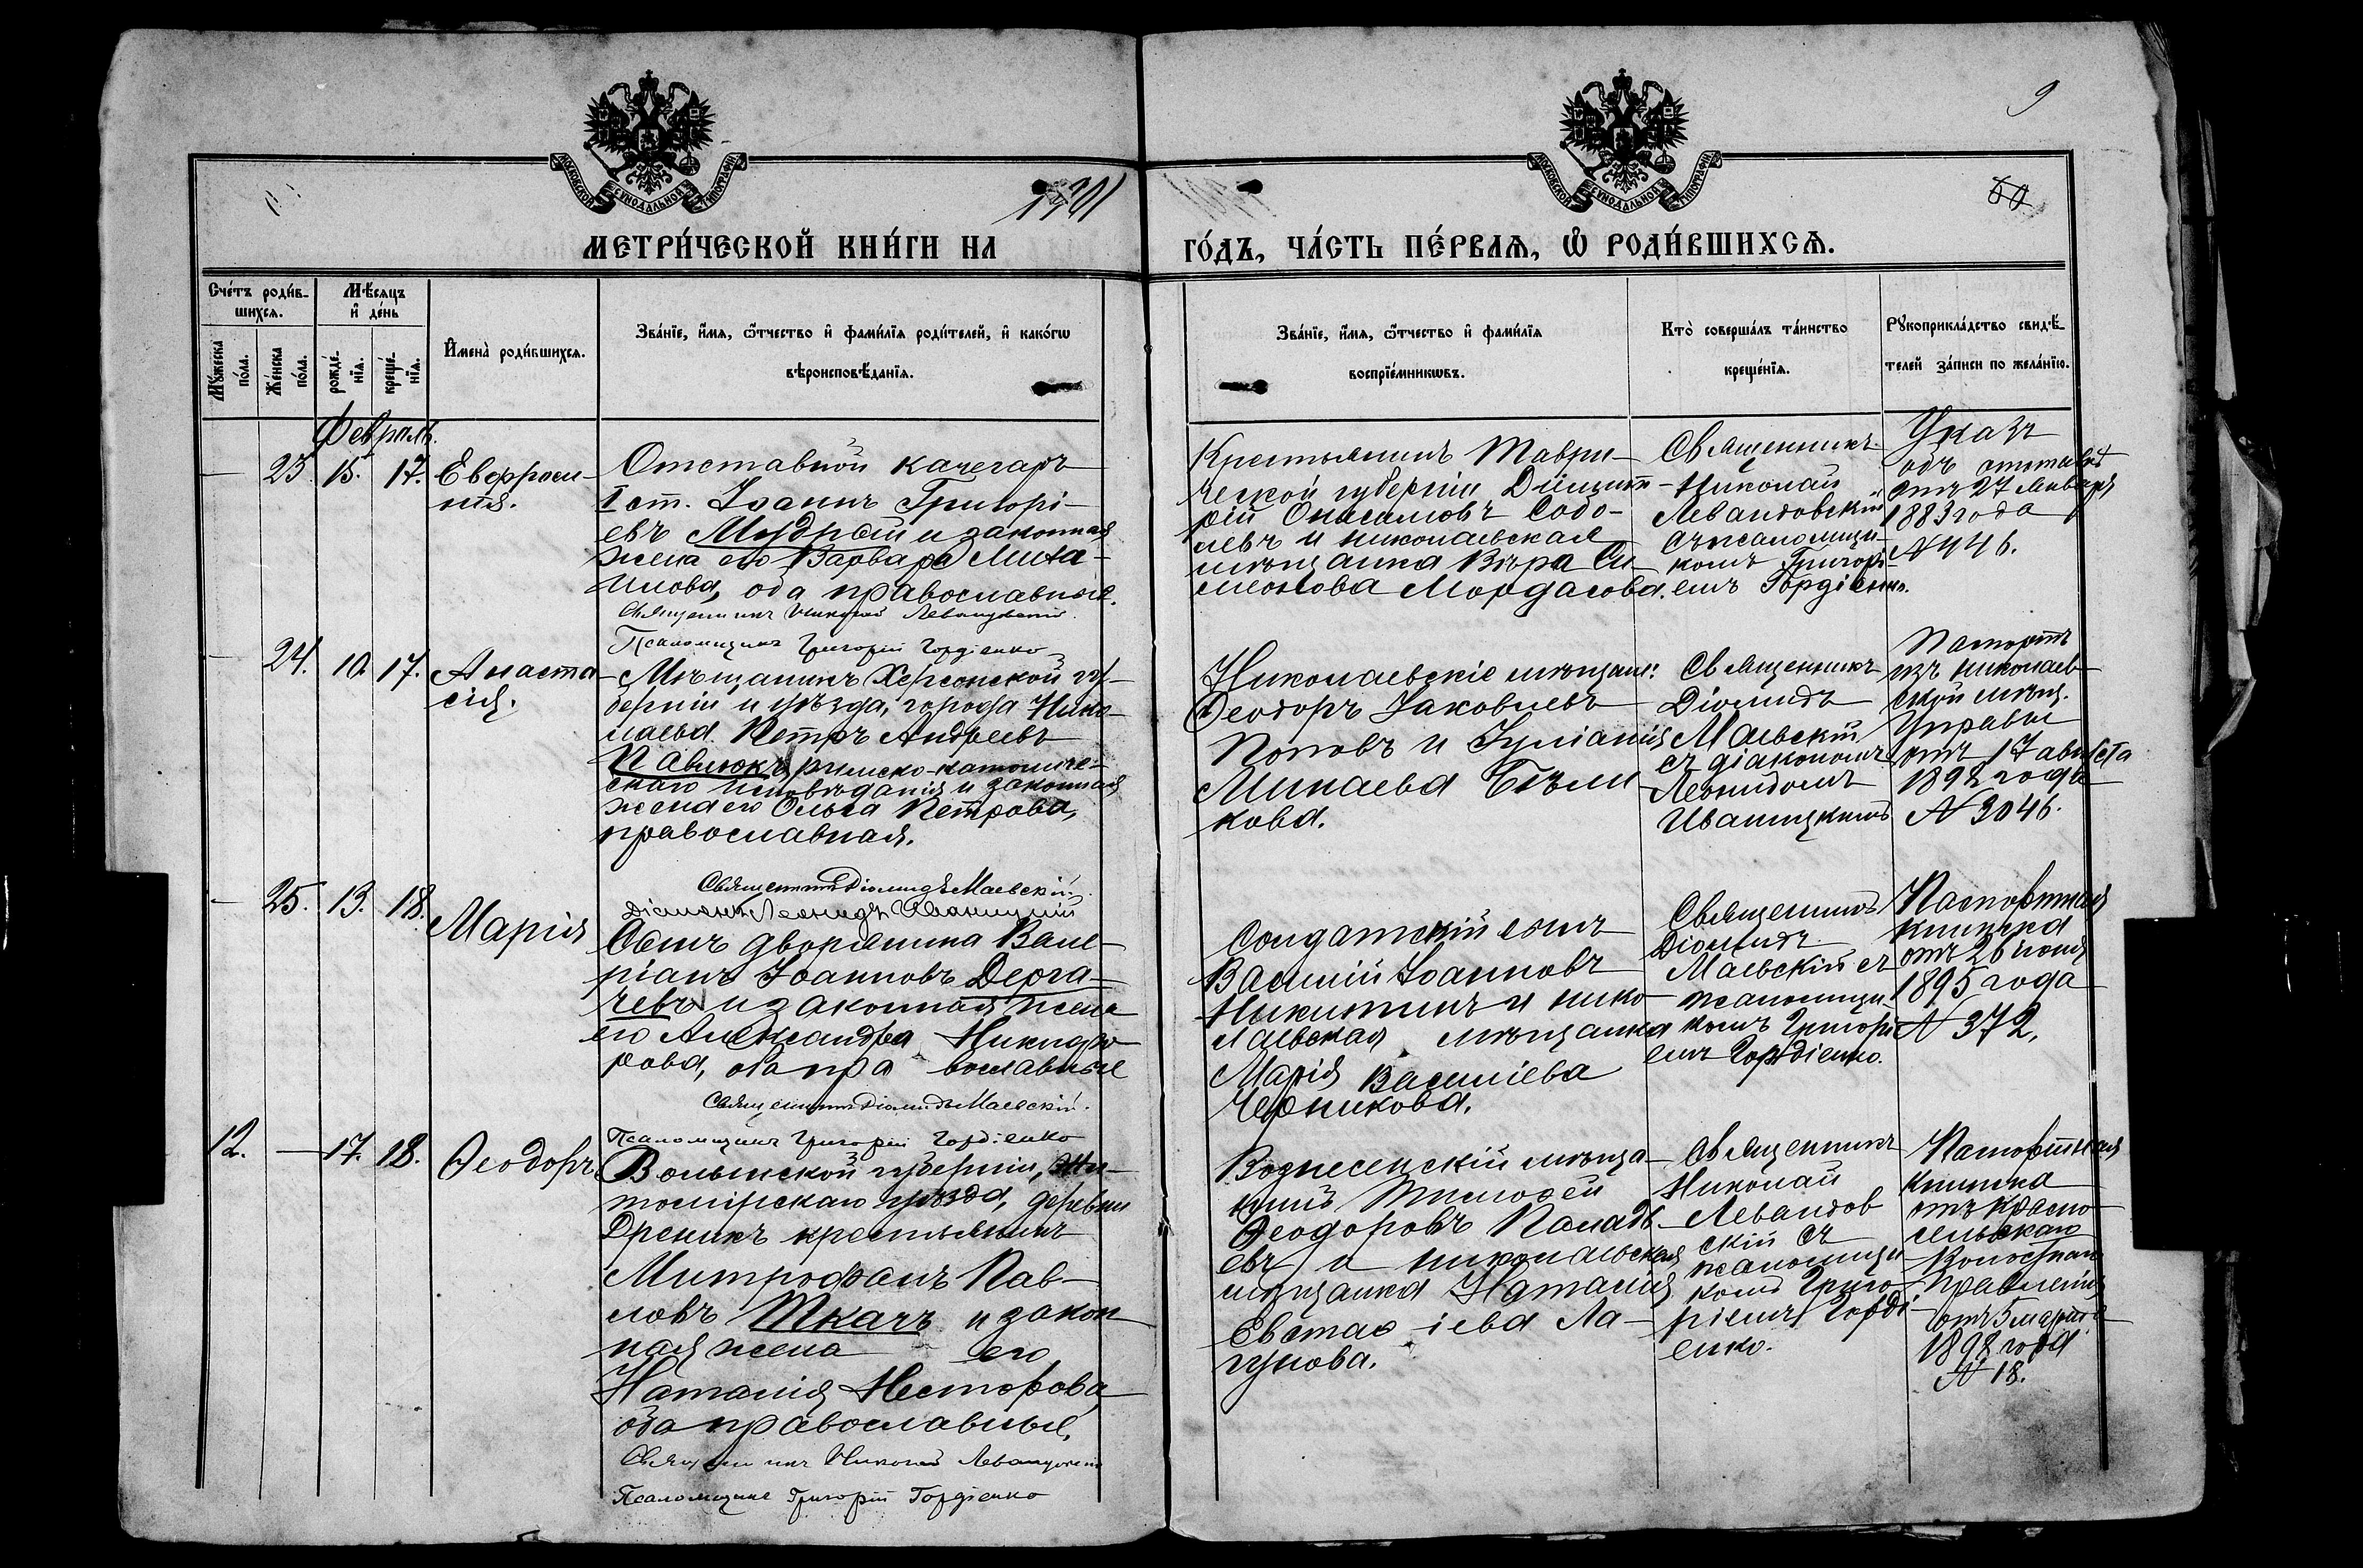 9
МОСКОВСКОЙ СУНОДАЛЬНОЙ ТИПОГРАФІИ
МОСКОВСКОЙ СУНОДАЛЬНОЙ ТИПОГРАФІИ
1901
60
МЕТРИ́ЧЕСКОЙ КНИ́ГИ НА
ГО́ДЪ, ЧА́СТЬ ПЕ́РВАѦ, Ѽ РОДИ́ВШИХСѦ.
Сче́тъ роди́в-
шихсѧ.
Мѣ́сѧцъ
и҆ де́нь
Мꙋ́жеска
по́ла.
Же́нска
по́ла.
рожде́-
нїѧ.
креще́-
нїѧ.
И҆мена̀ роди́вшихсѧ.
Зва́нїе, и҆́мѧ, ѻ҆́тчество и҆ фами́лїѧ роди́телей, и҆ како́гѡ
вѣроисповѣ́данїѧ.
Зва́нїе, и҆́мѧ, ѻ҆́тчество и҆ фами́лїѧ
воспрїе́мникѡвъ.
Кто̀ соверша́лъ та́инство
креще́нїѧ.
Рꙋкоприкла́дство свидѣ́-
телей за́писи по жела́нїю.
Февраль.
— 23. 15. 17. Евфроси-
нія.
Отставной качегаръ
I ст. Іоаннъ Григорі-
евъ Мудрый и законная
жена его Варвара Миха-
илова, оба православные.
Священникъ Николай Левандовскій
Псаломщикъ Григорій Гордіенко
Крестьянинъ Таври-
ческой губерніи Димит-
рій Онисимовъ Собо-
левъ и николаевская
мѣщанка Вѣра Си-
меонова Мордасова.
Священникъ
Николай
Левандовскій
съ псаломщи-
комъ Григорі-
емъ Гордіенко.
Указъ
объ отставкѣ
отъ 27 Января
1883 года
N 446.
— 24. 10. 17. Анаста-
сія.
Мѣщанинъ Херсонской гу-
берніи и уѣзда, города Нико-
лаева Петръ Андреевъ
Павлюкъ, римско-католиче-
скаго исповѣданія и законная
жена его Ольга Петрова,
православная.
Священникъ Діомидъ Маевскій
Діаконъ Леонидъ Иваницкій
Николаевскіе мѣщане:
Ѳеодоръ Іаковлевъ
Поповъ и Іуліанія
Минаева Бѣли-
кова.
Священникъ
Діомидъ
Маевскій
съ діакономъ
Леонидомъ
Иваницкимъ
Паспортъ
изъ николаев-
ской мѣщ.
Управы
отъ 17 августа
1898 года
N 3046.
— 25. 13. 18. Марія
Сынъ дворянина Вале-
ріанъ Іоанновъ Дерга-
чевъ и законная жена
его Александра Никифо-
рова, оба православные
Священникъ Діомидъ Маевскій.
Псаломщикъ Григорій Гордіенко
Солдатскій сынъ
Василій Іоанновъ
Никитинъ и нико-
лаевская мѣщанка
Марія Василіева
Черникова.
Священникъ
Діомидъ
Маевскій съ
псаломщи-
комъ Григорі-
емъ Гордіенко.
Паспортная
книжка
отъ 26 іюня
1895 года
N 372.
12. — 17. 18. Ѳеодоръ
Волынской губерніи, Жи-
томірскаго уѣзда, деревни
Дреникъ крестьянинъ
Митрофанъ Пав-
ловъ Ткачъ и закон-
ная жена его
Наталія Несторова,
оба православные.
Священникъ Николай Левандовскій
Псаломщикъ Григорій Гордіенко
Вознесенскій мѣща-
нинъ Тимоѳей
Ѳеодоровъ Палад-
евъ и николаевская
мѣщанка Наталія
Евстаѳіева Ла-
гунова.
Священникъ
Николай
Левандов-
скій съ
псаломщи-
комъ Григо-
ріемъ Горді-
енко.
Паспортная
книжка
отъ Красно-
сельскаго
Волостнаго
Правленія
отъ 5 марта
1898 года
N 18.